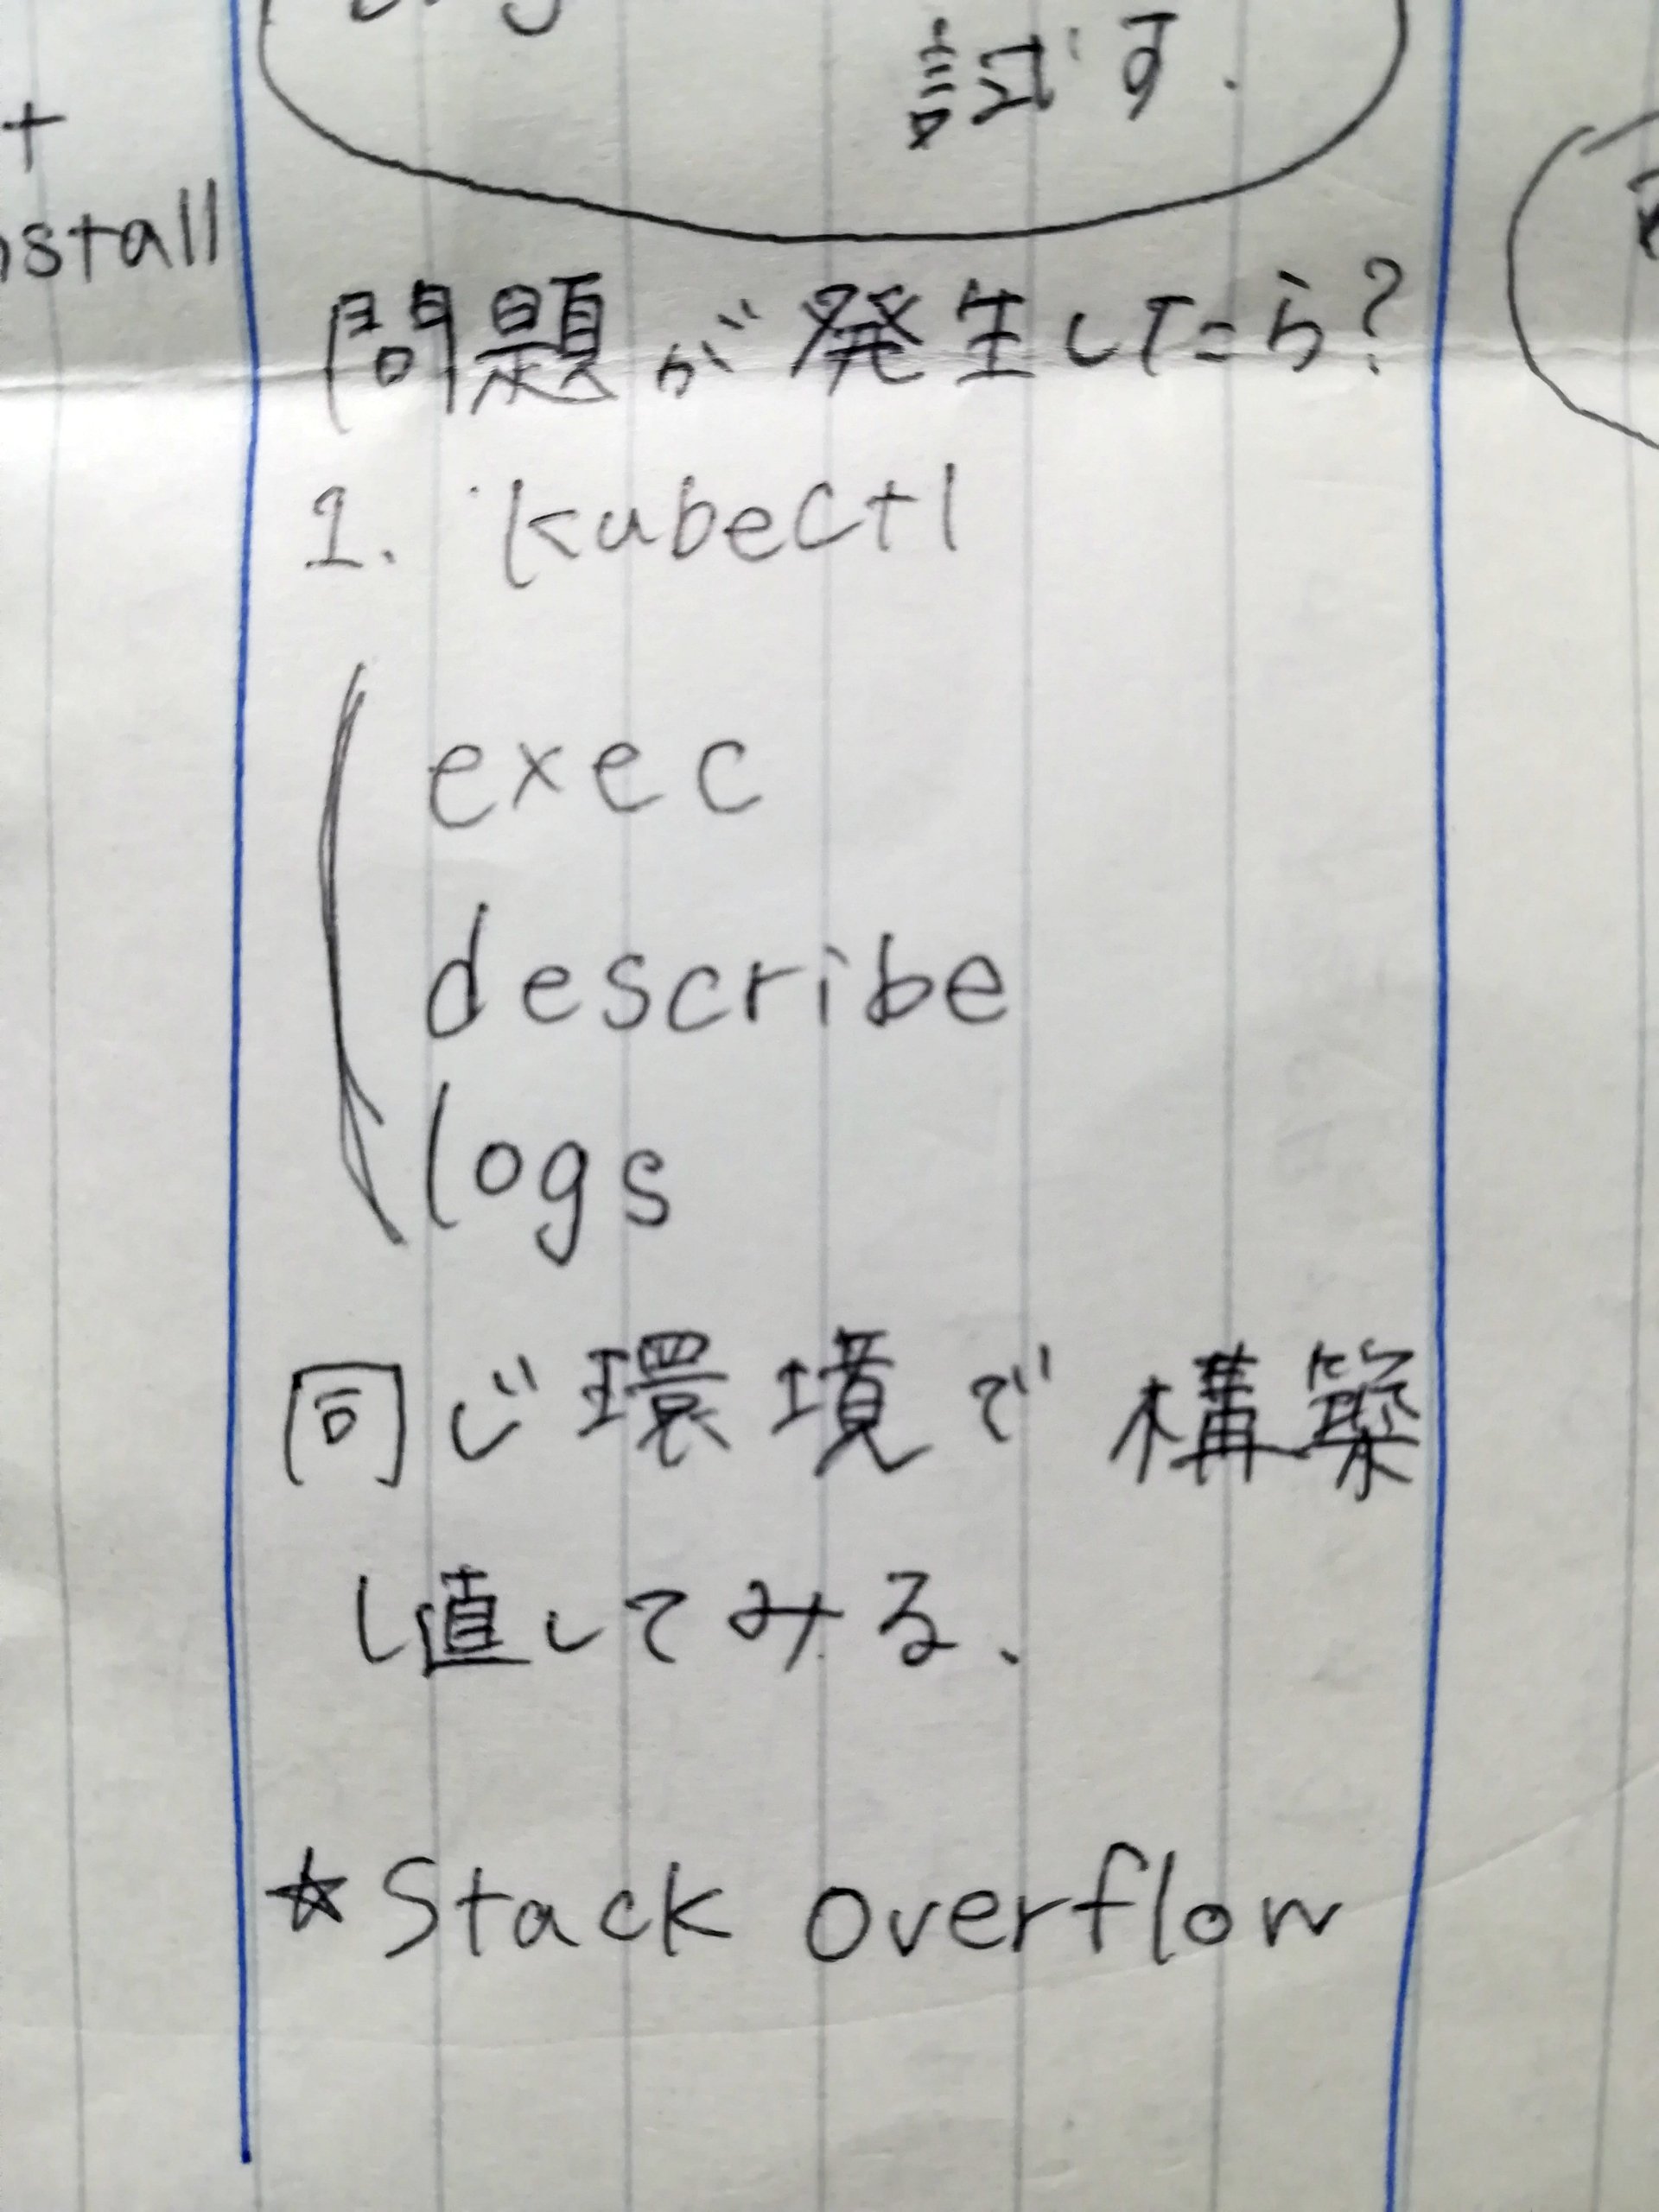 試す.
+
問題が発生したら?
1. kubectl
exec
describe
logs
同じ環境で構築
し直してみる、
☆Stack overflow